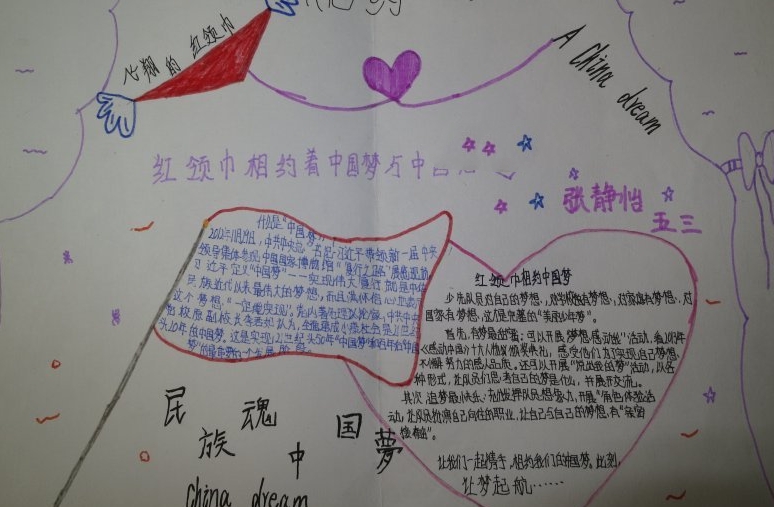 飞翔的红领巾
A China dream
红领巾相约着中国梦与中国
张静怡
五三
什么是"中国梦"
领导集体参观中国国家博物馆"复兴之路"展览
习近平定义"中国梦"——实现伟大复兴就是中华
民族近代以来最伟大的梦想,而且满怀信心地表示
这个梦想"一定能实现"。
红领巾相约中国梦
少先队员对自己的梦想,对学校有梦想,对家庭有梦想,对
国家有梦想,这就是完整的"美丽少年梦"。
首先,有梦最丰富:可以开展"梦想感动我"活动,看2013年
《感动中国》十大人物的颁奖典礼,感受他们为了实现自己梦想,
不懈努力的感人品质。还可以开展"说出我的梦"活动,以各
种形式,让队员们思考自己的梦是什么,并展开交流。
其次,追梦最快乐:充分发挥队员想象力,开展"角色体验活
动,让队员扮演自己向往的职业,让自己与自己的梦想,有"亲密
接触"。
让我们一起携手,相约我们的中国梦。此刻,
让梦起航……
民族魂 中国夢
China dream